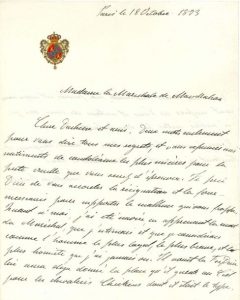 Paris le 18 Octobre 1893
Madame la Maréchale de Mac-Mahon
Chère Duchesse et amie. Deux mots seulement
pour vous dire tous mes regrets, et vous exprimer mes
sentiments de condoléance les plus sincères pour la
perte cruelle que vous venez d'éprouver. Je prie
Dieu de vous accorder la résignation et la force
nécessaires pour supporter le malheur qui vous frappe.
Quant à moi j'ai été en apprenant la mort
du Maréchal, que j'estimais et que je considérais
comme l'homme le plus loyal, le plus brave, et le
plus honnête que j'ai jamais vu. Il aura
lui une déjà donné la place qu'il au Ciel
pour les chevaliers Chrétiens dont il était le type